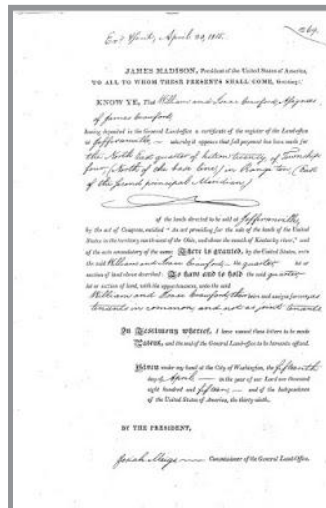 269.
April 20, 1815.
JAMES MADISON, President of the United States of America,
TO ALL TO WHOM THESE PRESENTS SHALL COME, Greeting:
KNOW YE, That William and Isaac Crawford, Assignees
of James Crawford,
having deposited in the General Land-office a certificate of the register of the Land-office
at Jeffersonville, whereby it appears that full payment has been made for
the North East quarter of Section twenty of Township
four (North of the base line) in Range ten (East
of the second principal Meridian)
of the lands directed to be sold at Jeffersonville,
by the act of Congress, entitled "An act providing for the sale of the lands of the United
States in the territory north-west of the Ohio, and above the mouth of Kentucky river," and
of the acts amendatory of the same, There is granted, by the United States, unto
the said William and Isaac Crawford the quarter lot or
section of land above described: To have and to hold the said quarter
lot or section of land, with the appurtenances, unto the said
William and Isaac Crawford, their heirs and assigns forever, as
tenants in common and not as joint tenants
In Testimony whereof, I have caused these letters to be made
Patent, and the seal of the General Land-office to be hereunto affixed.
Given under my hand at the City of Washington, the fifteenth
day of April in the year of our Lord one thousand
eight hundred and fifteen and of the Independence
of the United States of America, the thirty-ninth.
BY THE PRESIDENT,
Josiah Meigs Commissioner of the General Land-Office.